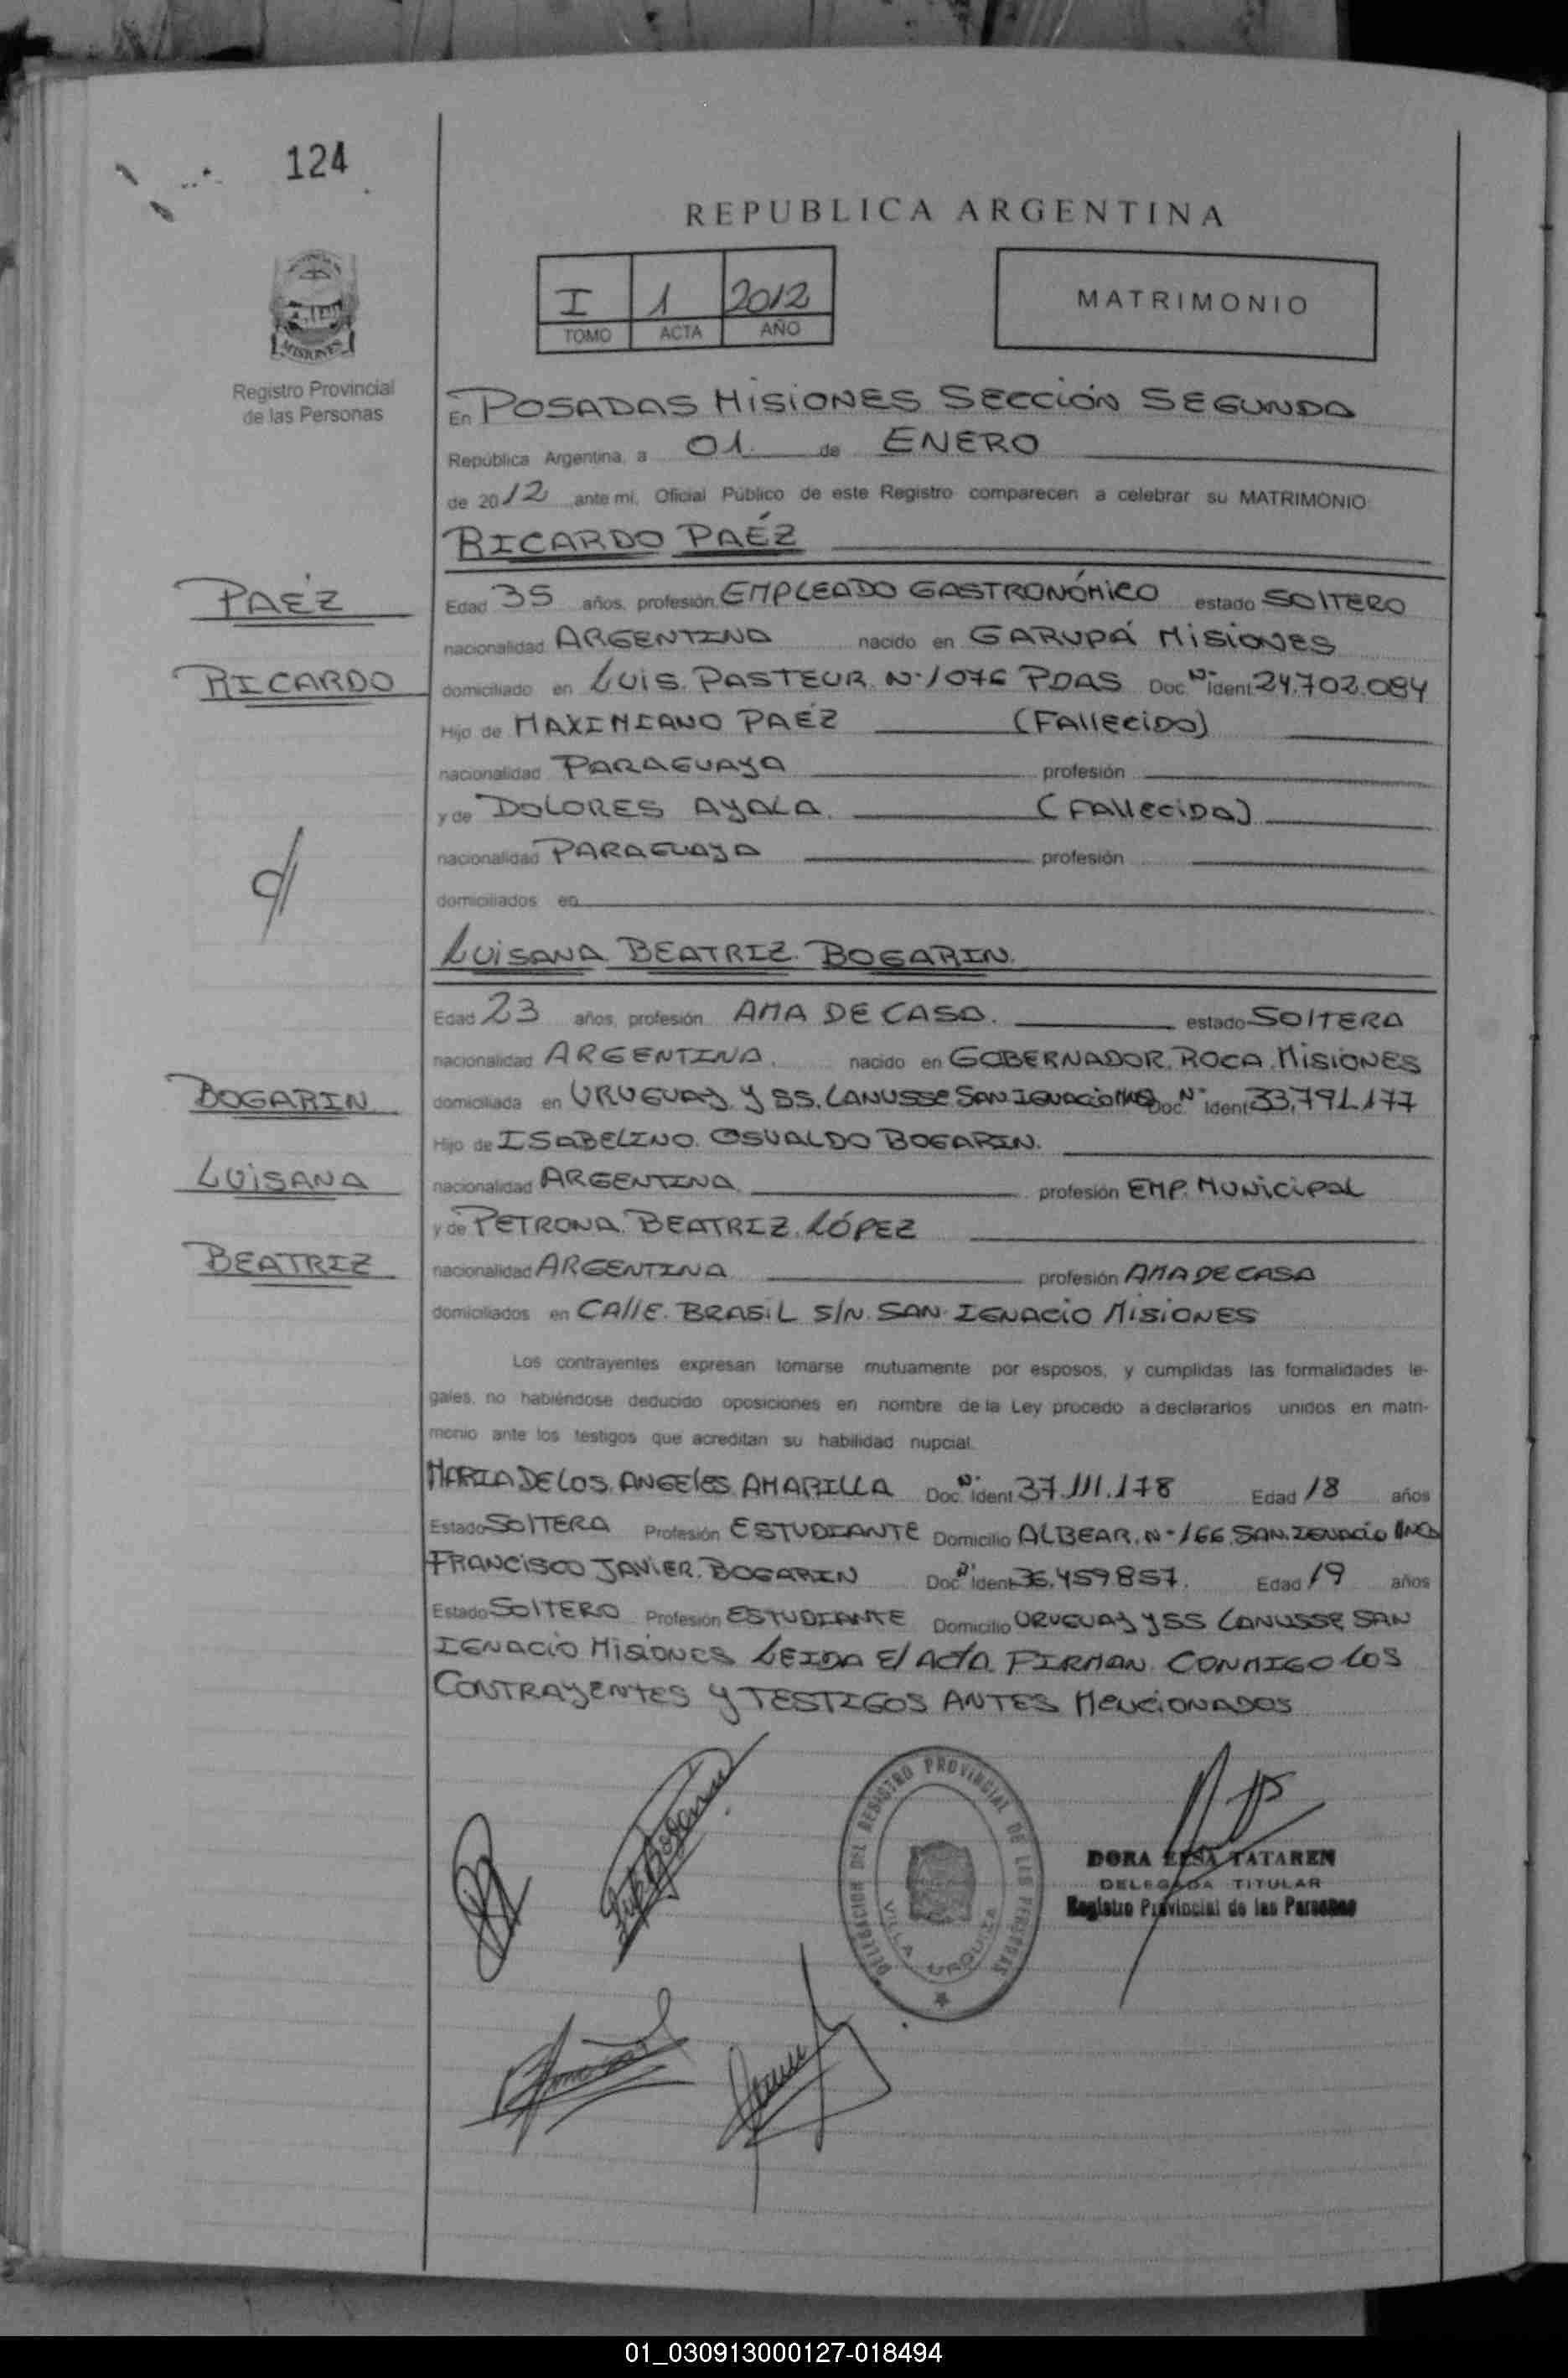 124
REPUBLICA ARGENTINA
I 1 2012
TOMO ACTA AÑO
MATRIMONIO
MISIONES
Registro Provincial
de las Personas
En POSADAS MISIONES SECCIÓN SEGUNDA
República Argentina, a 01. de ENERO
de 2012 ante mí, Oficial Público de este Registro comparecen a celebrar su MATRIMONIO
RICARDO PAÉZ
PAÉZ
Edad 35 años, profesión EMPLEADO GASTRONÓMICO estado SOLTERO
nacionalidad ARGENTINA nacido en GARUPÁ MISIONES
RICARDO
domiciliado en LUIS. PASTEUR. N-1076 PDAS Doc. Nº ident 24.702.084
Hijo de MAXIMIANO PAÉZ (FALLECIDO)
nacionalidad PARAGUAYA profesión
y de DOLORES AYALA. (FALLECIDA)
nacionalidad PARAGUAYA profesión
domiciliados en
LUISANA BEATRIZ. BOGARIN.
Edad 23 años, profesión AMA DE CASA. estado SOLTERA
nacionalidad ARGENTINA. nacido en GOBERNADOR. ROCA. MISIONES
BOGARIN
domiciliada en URUGUAY Y SS. LANUSSE SAN IGNACIO Doc. Nº ident 33.791.177
Hijo de ISABELINO. OSVALDO BOGARIN.
LUISANA
nacionalidad ARGENTINA profesión EMP. MUNICIPAL
y de PETRONA. BEATRIZ. LÓPEZ
BEATRIZ
nacionalidad ARGENTINA profesión AMA DE CASA
domiciliados en CALLE. BRASIL S/N. SAN IGNACIO MISIONES
Los contrayentes expresan tomarse mutuamente por esposos, y cumplidas las formalidades le-
gales, no habiéndose deducido oposiciones en nombre de la Ley procedo a declararlos unidos en matri-
monio ante los testigos que acreditan su habilidad nupcial.
MARIA DE LOS. ANGELES. AMARILLA Doc. Nº ident 37.111.178 Edad 18 años
Estado SOLTERA Profesión ESTUDIANTE Domicilio ALBEAR. N-166 SAN. IGNACIO
FRANCISCO JAVIER. BOGARIN Doc. Nº ident 36.459857. Edad 19 años
Estado SOLTERO Profesión ESTUDIANTE Domicilio URUGUAY Y SS LANUSSE SAN
IGNACIO MISIONES LEIDA EL ACTA FIRMAN CONMIGO LOS
CONTRAYENTES Y TESTIGOS ANTES MENCIONADOS
DELEGACION DEL REGISTRO PROVINCIAL DE LAS PERSONAS
VILLA URQUIZA
DORA ELSA TATAREN
DELEGADA TITULAR
Registro Provincial de las Personas
01_030913000127-018494